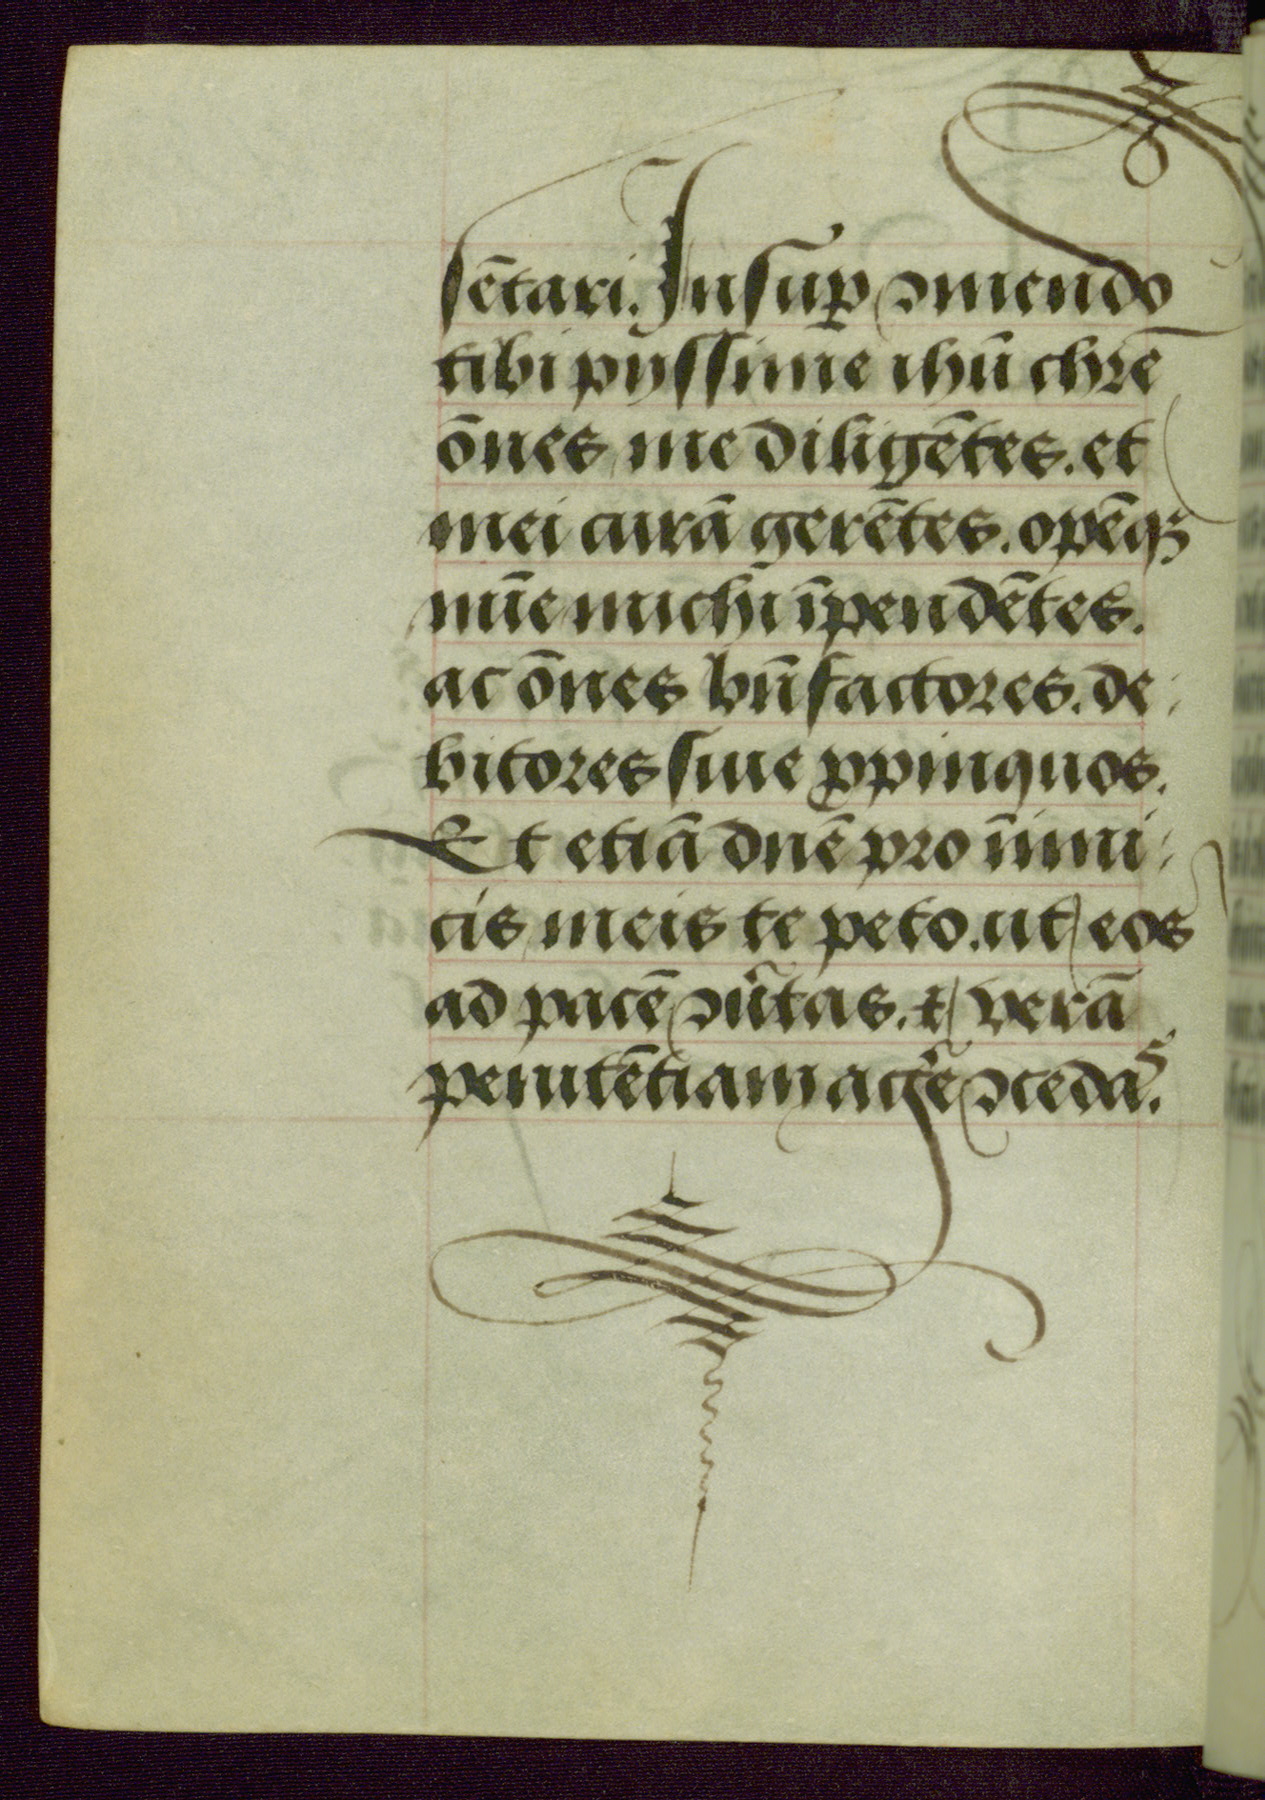 sētari. Insuꝑ ↄmendo
tibi pijssime ihū chr̄e
ōnes me diligētes. et
mei curā gerētes. opēqꝫ
mīe michi īpendētes.
ac ōnes bn̄factores. de⸗
bitores siue ꝓpinquos.
Et etiā dn̄e pro inimi⸗
cis meis te peto. ut eos
ad pacē ↄūtas. ⁊ verā
penitētiam agēͬ ↄcedaˢ.